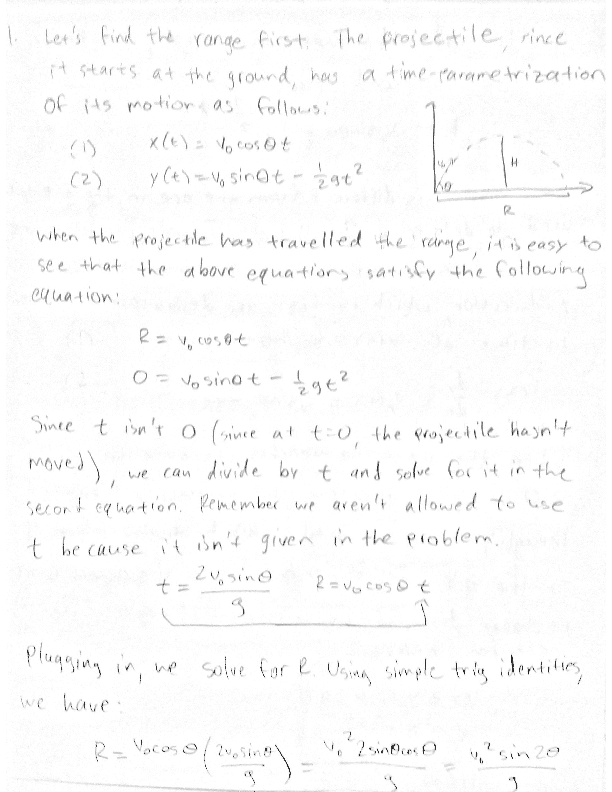 1. Let's find the range first. The projectile, since
it starts at the ground, has a time-parametrization
of its motion as follows:
(1) x(t) = v₀ cosθt
(2) y(t) = v₀ sinθt - 1/2 gt²
H
θ
R
When the projectile has travelled the range, it is easy to
see that the above equations satisfy the following
equation:
R = v₀ cosθt
0 = v₀ sinθt - 1/2 gt²
Since t isn't 0 (since at t=0, the projectile hasn't
moved), we can divide by t and solve for it in the
second equation. Remember we aren't allowed to use
t because it isn't given in the problem.
t = 2v₀ sinθ / g R = v₀ cosθ t
Plugging in, we solve for R. Using simple trig identities,
we have:
R = v₀cosθ (2v₀sinθ / g) = v₀² 2sinθcosθ / g = v₀² sin2θ / g